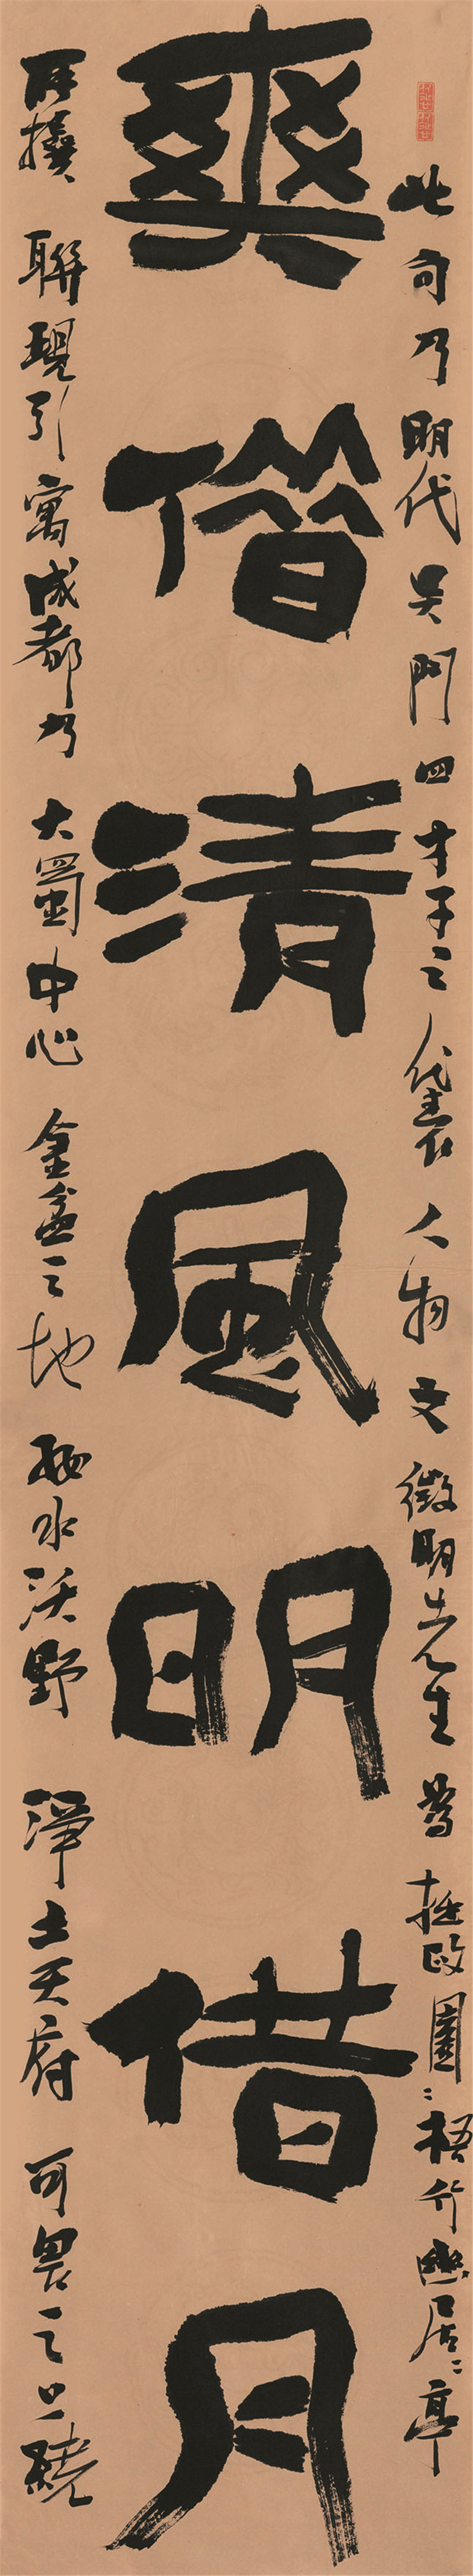 爽借清風明借月
此句乃明代吴門四才子之代表人物文徵明先生為拙政園梧竹幽居亭
所撰聯現引寓成都乃大蜀中心金盆之地水沃野淨土天府可畏之饒